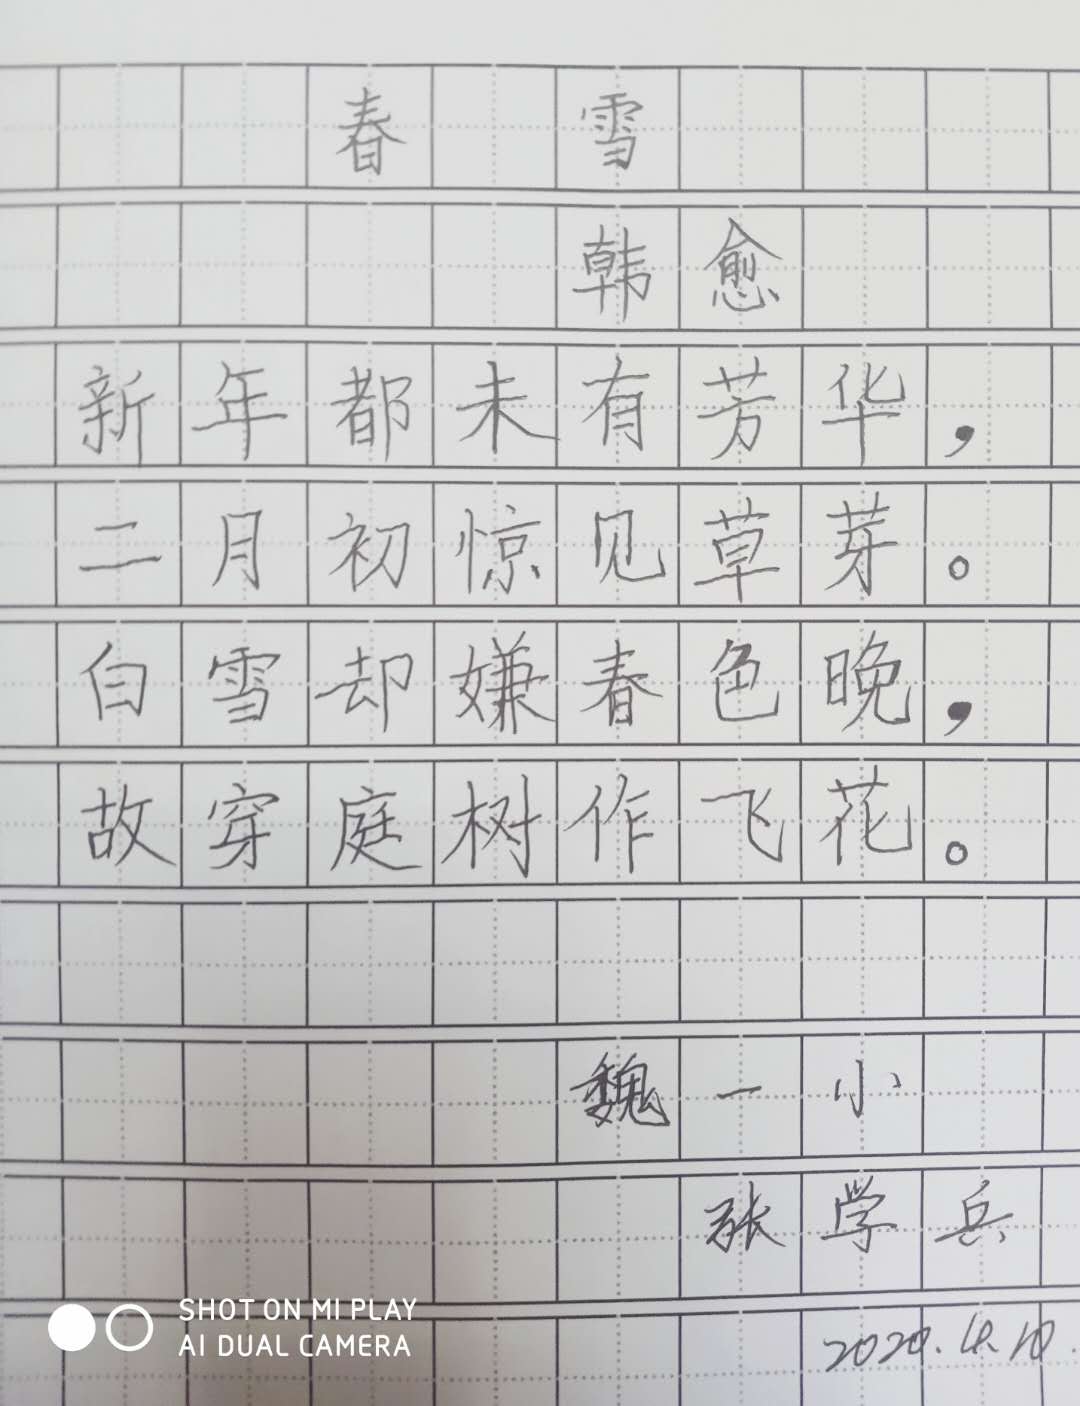 春雪
韩愈
新年都未有芳华,
二月初惊见草芽。
白雪却嫌春色晚,
故穿庭树作飞花。
魏一小
张学兵
2020.4.10.
SHOT ON MI PLAY
AI DUAL CAMERA